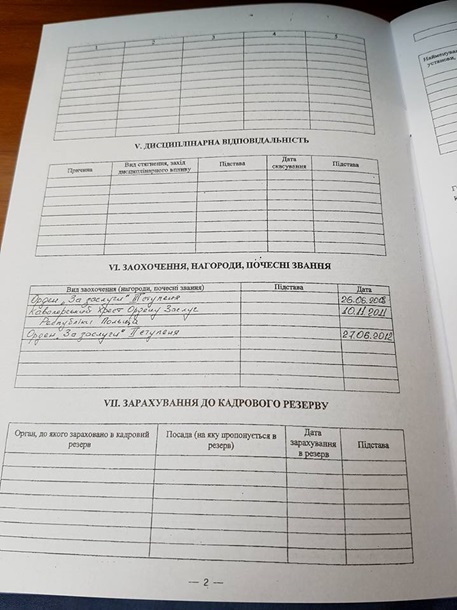 1 2 3 4 5
V. ДИСЦИПЛІНАРНА ВІДПОВІДАЛЬНІСТЬ
Причина
Вид стягнення, захід
дисциплінарного впливу
Підстава
Дата
скасування
Підстава
VI. ЗАОХОЧЕННЯ, НАГОРОДИ, ПОЧЕСНІ ЗВАННЯ
Вид заохочення (нагороди, почесні звання) Підстава Дата
Орден „За заслуги" III ступеня 26.06.2008
Кавалерський Хрест Ордену Заслуг 10.11.2011
Республіки Польща
Орден „За заслуги" II ступеня 27.06.2012
VII. ЗАРАХУВАННЯ ДО КАДРОВОГО РЕЗЕРВУ
Орган, до якого зараховано в кадровий
резерв
Посада (на яку пропонується в
резерв)
Дата
зарахування
в резерв
Підстава
— 2 —
установи,